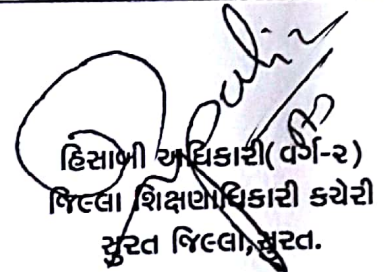 હિસાબી અધિકારી(વર્ગ-૨)
જિલ્લા શિક્ષણાધિકારી કચેરી
સુરત જિલ્લા,સુરત.